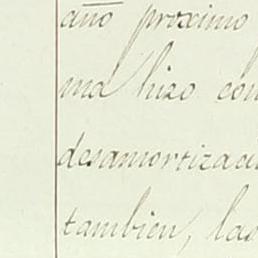 año proximo
ma hizo con
desamortizaci
tambien, las